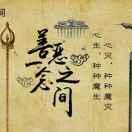 间
善恶之间
一念
心灵,种种魔灭
心生,种种魔生